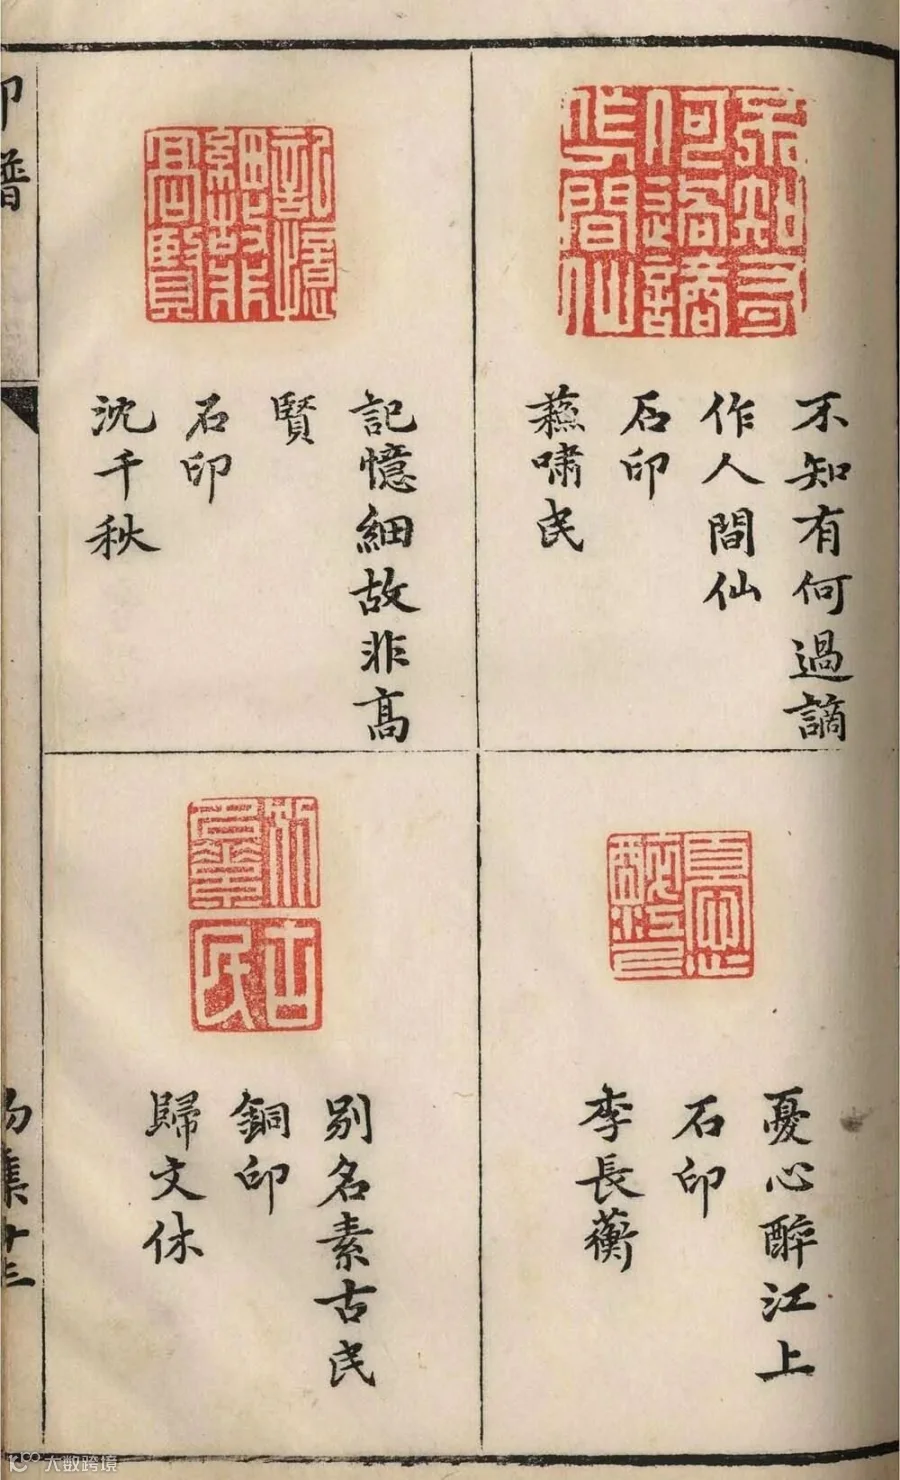 不知有何過謫
作人間仙
石印
蘓嘯民
記憶細故非高
賢
石印
沈千秋
憂心醉江上
石印
李長蘅
别名素古民
銅印
歸文休
印譜
集十三
大数跨境